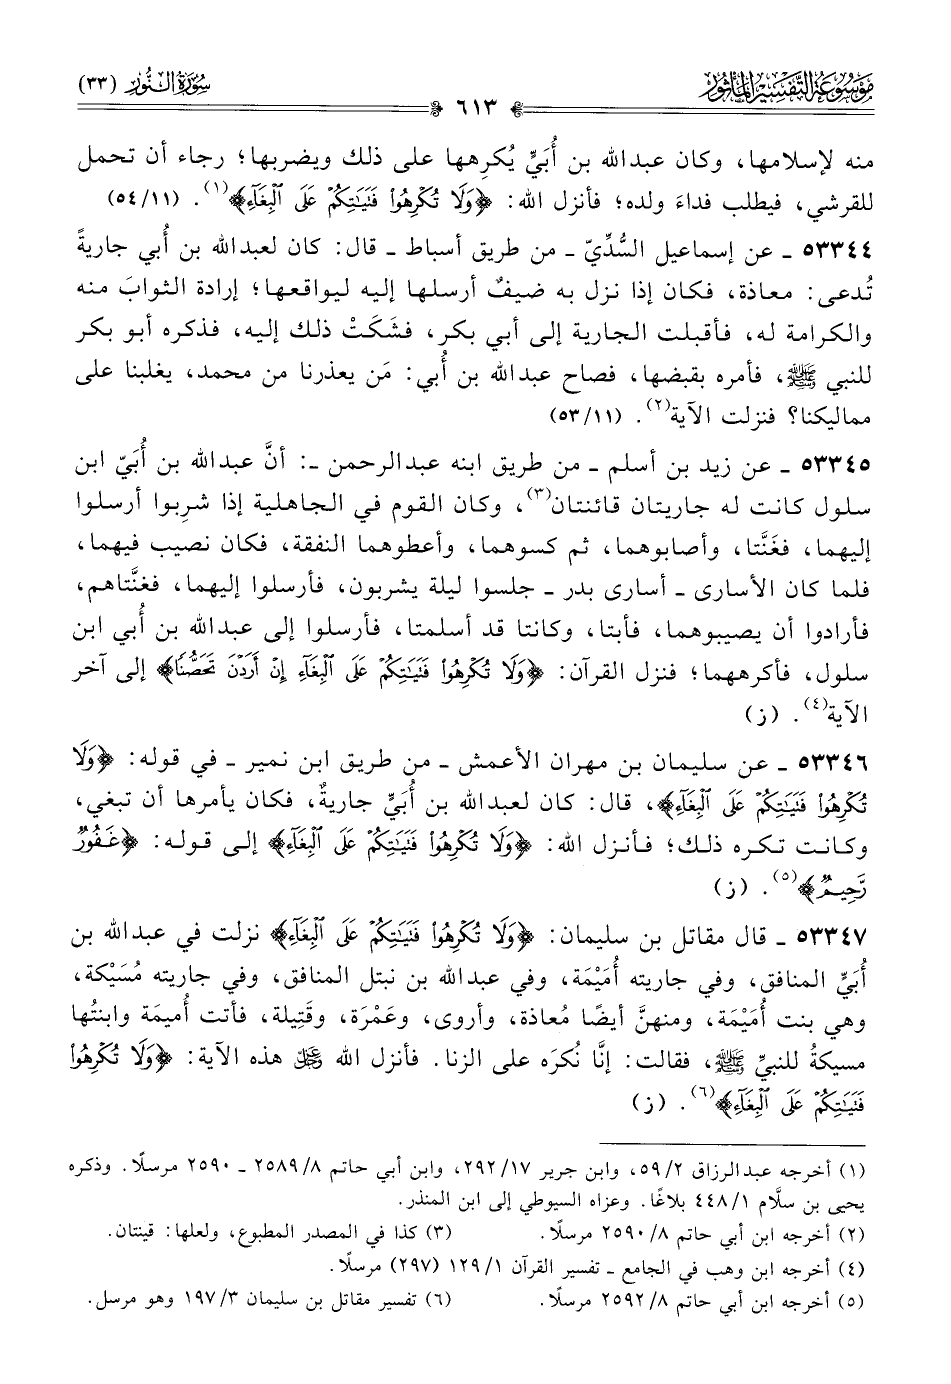 مَوْسُوعَةُ التَّفْسِيرِ المَأْثُورِ
سُورَةُ النُّورِ (٣٣)
٦١٣
منه لإسلامها، وكان عبدالله بن أُبَيٍّ يُكرِهها على ذلك ويضربها؛ رجاء أن تحمل
للقرشي، فيطلب فداءَ ولده؛ فأنزل الله: ﴿وَلَا تُكْرِهُوا۟ فَتَيَـٰتِكُمْ عَلَى ٱلْبِغَآءِ﴾(١). (١١/ ٥٤)
٥٣٣٤٤ ـ عن إسماعيل السُّدِّيّ ـ من طريق أسباط ـ قال: كان لعبدالله بن أُبي جاريةً
تُدعى: معاذة، فكان إذا نزل به ضيفٌ أرسلها إليه ليواقعها؛ إرادة الثوابَ منه
والكرامة له، فأقبلت الجارية إلى أبي بكر، فشَكَتْ ذلك إليه، فذكره أبو بكر
للنبي ﷺ، فأمره بقبضها، فصاح عبدالله بن أُبي: مَن يعذرنا من محمد، يغلبنا على
مماليكنا؟ فنزلت الآية(٢). (١١/ ٥٣)
٥٣٣٤٥ ـ عن زيد بن أسلم ـ من طريق ابنه عبدالرحمن ـ: أنَّ عبدالله بن أُبَيّ ابن
سلول كانت له جاريتان قائنتان(٣)، وكان القوم في الجاهلية إذا شرِبوا أرسلوا
إليهما، فغَنَّتا، وأصابوهما، ثم كسوهما، وأعطوهما النفقة، فكان نصيب فيهما،
فلما كان الأسارى ـ أسارى بدر ـ جلسوا ليلة يشربون، فأرسلوا إليهما، فغنَّتاهم،
فأرادوا أن يصيبوهما، فأبتا، وكانتا قد أسلمتا، فأرسلوا إلى عبدالله بن أُبي ابن
سلول، فأكرههما؛ فنزل القرآن: ﴿وَلَا تُكْرِهُوا۟ فَتَيَـٰتِكُمْ عَلَى ٱلْبِغَآءِ إِنْ أَرَدْنَ تَحَصُّنًا﴾ إلى آخر
الآية(٤). (ز)
٥٣٣٤٦ ـ عن سليمان بن مهران الأعمش ـ من طريق ابن نمير ـ في قوله: ﴿وَلَا
تُكْرِهُوا۟ فَتَيَـٰتِكُمْ عَلَى ٱلْبِغَآءِ﴾، قال: كان لعبدالله بن أُبَيٍّ جاريةٌ، فكان يأمرها أن تبغي،
وكانت تكره ذلك؛ فأنزل الله: ﴿وَلَا تُكْرِهُوا۟ فَتَيَـٰتِكُمْ عَلَى ٱلْبِغَآءِ﴾ إلى قوله: ﴿غَفُورٌ
رَّحِيمٌ﴾(٥). (ز)
٥٣٣٤٧ ـ قال مقاتل بن سليمان: ﴿وَلَا تُكْرِهُوا۟ فَتَيَـٰتِكُمْ عَلَى ٱلْبِغَآءِ﴾ نزلت في عبدالله بن
أُبَيٍّ المنافق، وفي جاريته أُمَيْمَة، وفي عبدالله بن نبتل المنافق، وفي جاريته مُسَيْكة،
وهي بنت أُمَيْمَة، ومنهنَّ أيضًا مُعاذة، وأروى، وعَمْرَة، وقَتِيلة، فأتت أُميمَة وابنتُها
مسيكةُ للنبيِّ ﷺ، فقالت: إنَّا نُكرَه على الزنا. فأنزل الله ﷿ هذه الآية: ﴿وَلَا تُكْرِهُوا۟
فَتَيَـٰتِكُمْ عَلَى ٱلْبِغَآءِ﴾(٦). (ز)
(١) أخرجه عبدالرزاق ٢/ ٥٩، وابن جرير ١٧/ ٢٩٢، وابن أبي حاتم ٨/ ٢٥٨٩ ـ ٢٥٩٠ مرسلًا. وذكره
يحيى بن سلَّام ١/ ٤٤٨ بلاغًا. وعزاه السيوطي إلى ابن المنذر.
(٢) أخرجه ابن أبي حاتم ٨/ ٢٥٩٠ مرسلًا.
(٣) كذا في المصدر المطبوع، ولعلها: قينتان.
(٤) أخرجه ابن وهب في الجامع ـ تفسير القرآن ١/ ١٢٩ (٢٩٧) مرسلًا.
(٥) أخرجه ابن أبي حاتم ٨/ ٢٥٩٢ مرسلًا.
(٦) تفسير مقاتل بن سليمان ٣/ ١٩٧ وهو مرسل.